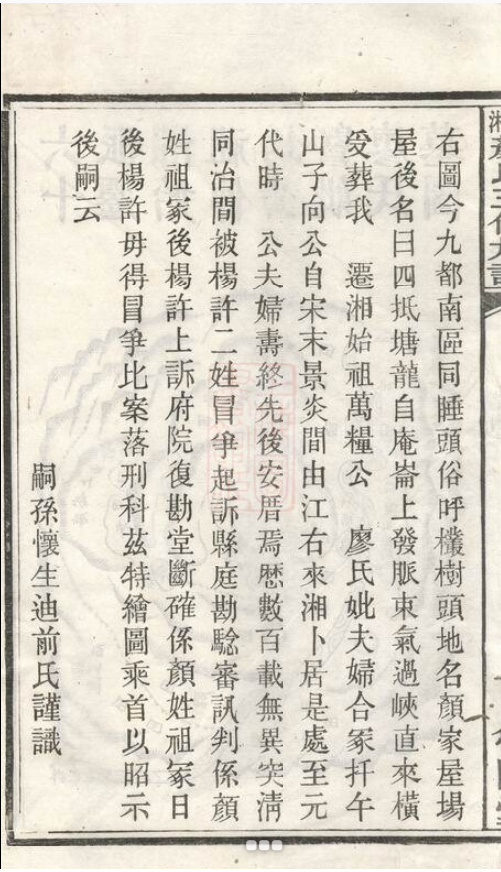 右圖今九都南區同睡頭俗呼欉樹頭地名顏家屋場
屋後名曰四抵塘龍自庵崙上發脈束氣過峽直來橫
受葬我　遷湘始祖萬糧公　廖氏妣夫婦合冢扞午
山子向公自宋末景炎間由江右來湘卜居是處至元
代時　公夫婦壽終先後安厝焉歷數百載無異突淸
同治間被楊許二姓冒爭起訴縣庭勘騐審訊判係顏
姓祖冢後楊許上訴府院復勘堂斷確係顏姓祖冢日
後楊許毋得冒爭比案落刑科茲特繪圖乘首以昭示
後嗣云
嗣孫懷生迪前氏謹識